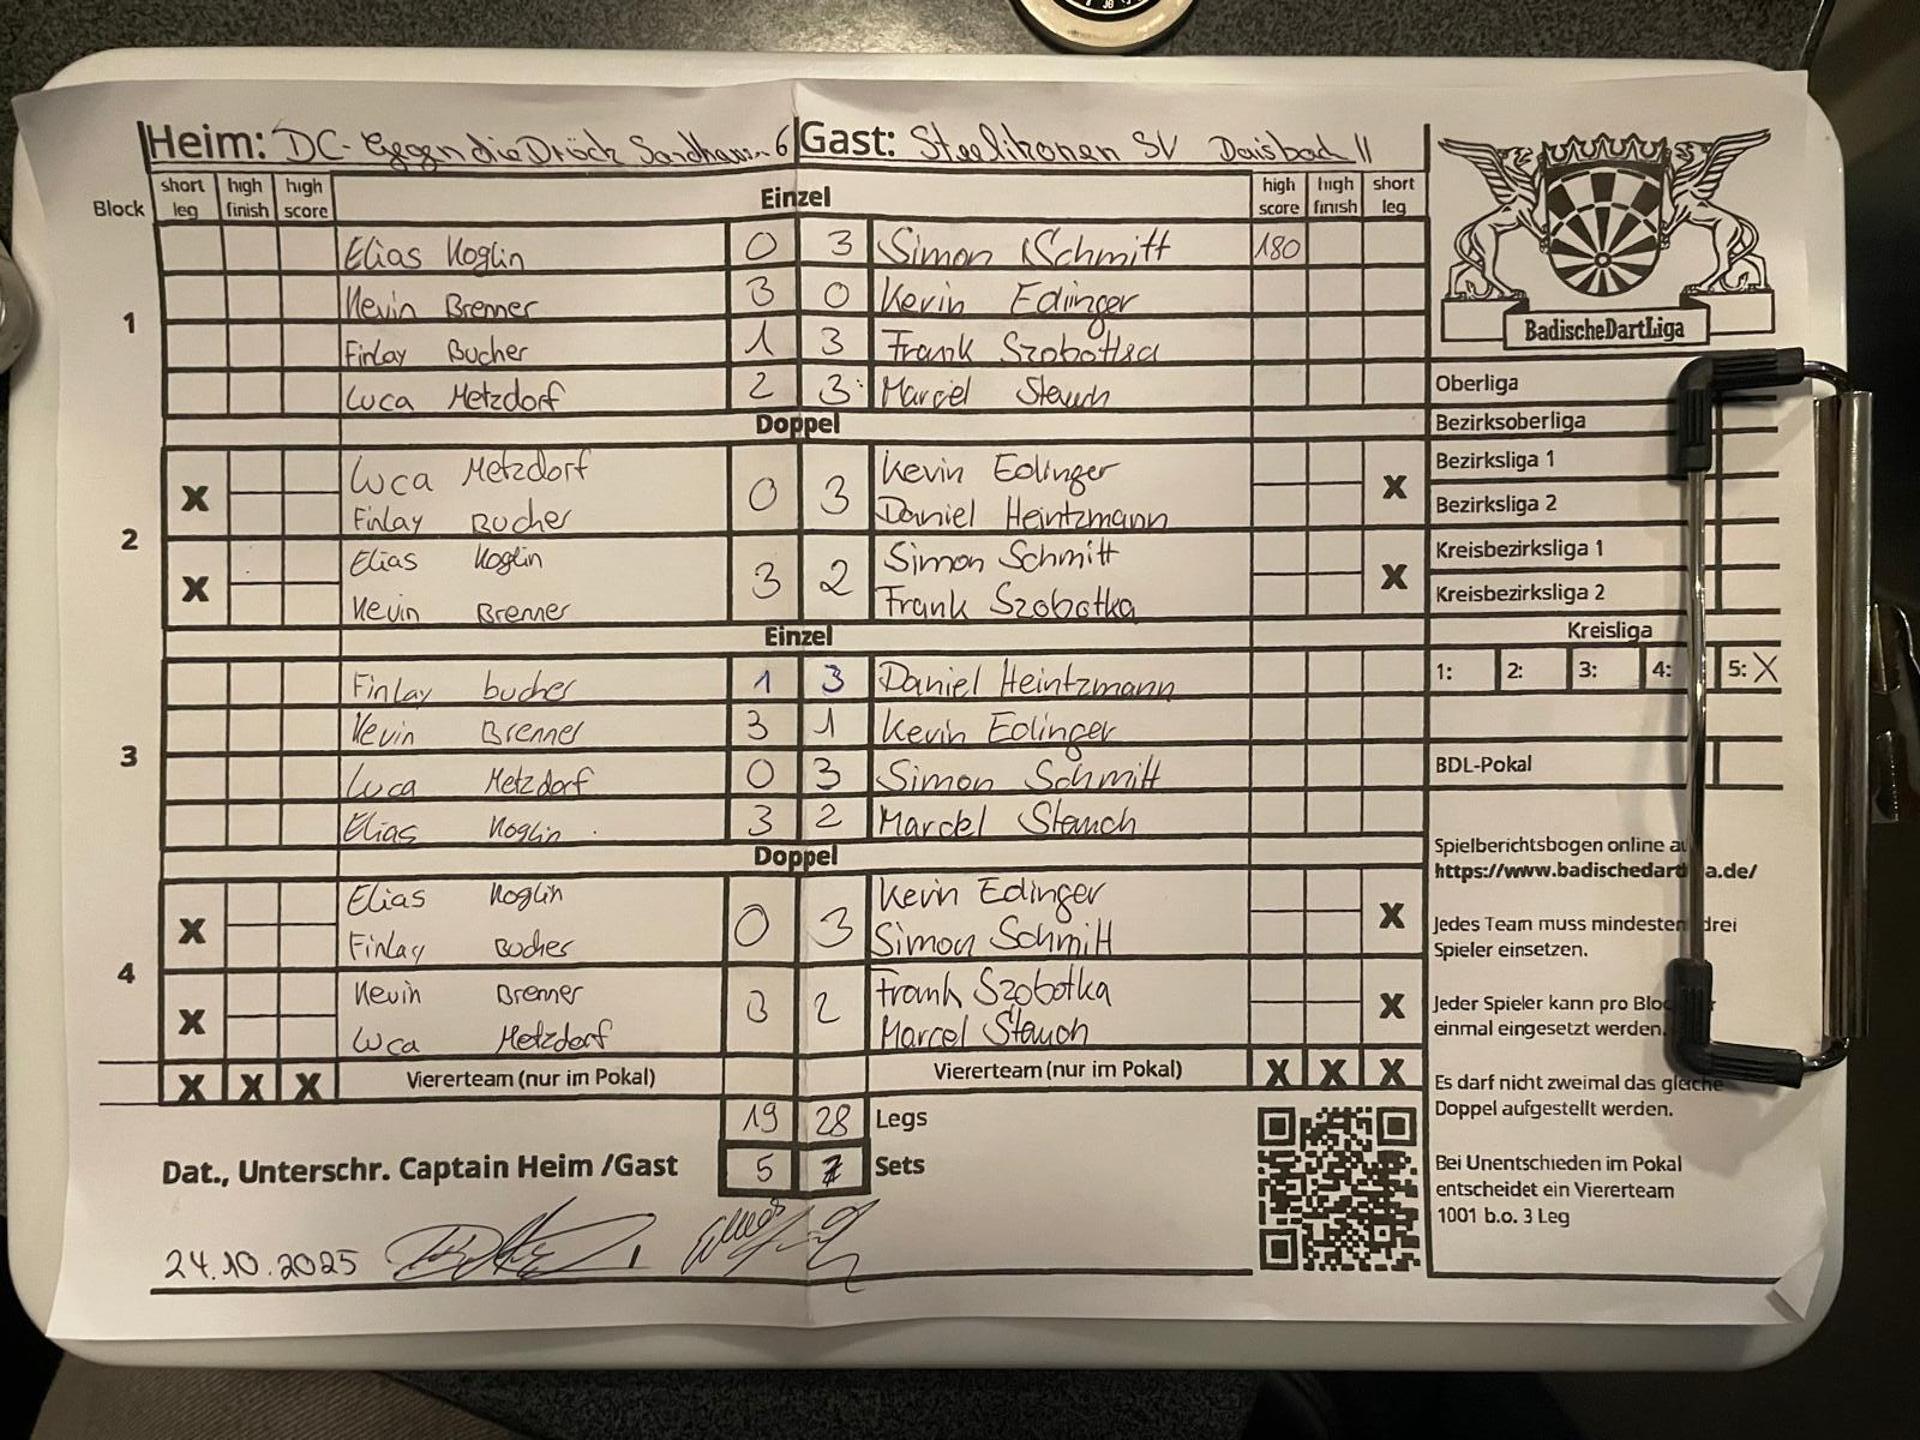 Heim: DC-Gegen die Dröck Sandhausen 6 Gast: Steelikonen SV Daisbach II
Block short leg high finish high score Einzel high score high finish short leg
1
Elias Koglin 0 3 Simon Schmitt 180
Kevin Brenner 3 0 Kevin Edinger
Finlay Bucher 1 3 Frank Szobotka
Luca Metzdorf 2 3 Marcel Stauch
Doppel
2
X Luca Metzdorf 0 3 Kevin Edinger X
Finlay Bucher Daniel Heintzmann
X Elias Koglin 3 2 Simon Schmitt X
Kevin Brenner Frank Szobotka
Einzel
3
Finlay bucher 1 3 Daniel Heintzmann
Kevin Brenner 3 1 Kevin Edinger
Luca Metzdorf 0 3 Simon Schmitt
Elias Koglin 3 2 Marcel Stauch
Doppel
4
X Elias Koglin 0 3 Kevin Edinger X
Finlay Bucher Simon Schmitt
X Kevin Brenner 3 2 Frank Szobotka X
Luca Metzdorf Marcel Stauch
X X X Viererteam (nur im Pokal) Viererteam (nur im Pokal) X X X
19 28 Legs
Dat., Unterschr. Captain Heim /Gast 5 7 Sets
24.10.2025
BadischeDartLiga
Oberliga
Bezirksoberliga
Bezirksliga 1
Bezirksliga 2
Kreisbezirksliga 1
Kreisbezirksliga 2
Kreisliga
1: 2: 3: 4: 5: X
BDL-Pokal
Spielberichtsbogen online au
https://www.badischedart a.de/
Jedes Team muss mindesten drei
Spieler einsetzen.
Jeder Spieler kann pro Bloc
einmal eingesetzt werden.
Es darf nicht zweimal das gleiche
Doppel aufgestellt werden.
Bei Unentschieden im Pokal
entscheidet ein Viererteam
1001 b.o. 3 Leg